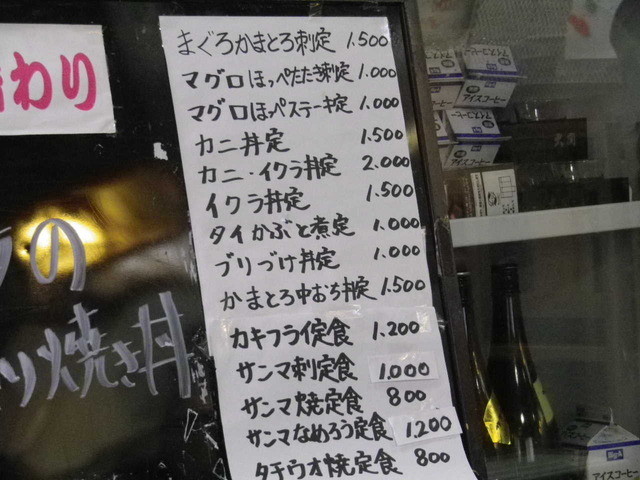 まぐろかまとろ刺定 1.500
マグロほっぺたたき刺定 1.000
マグロほっペステーキ定 1.000
カニ丼定 1.500
カニ・イクラ丼定 2.000
イクラ丼定 1.500
タイかぶと煮定 1.000
ブリづけ丼定 1.000
かまとろ中おち丼定 1.500
カキフライ定食 1.200
サンマ刺定食 1.000
サンマ焼定食 800
サンマなめろう定食 1.200
タチウオ焼定食 800
わり
の
り焼き丼
アイスコーヒー
アイスコーヒー
アイスコーヒー